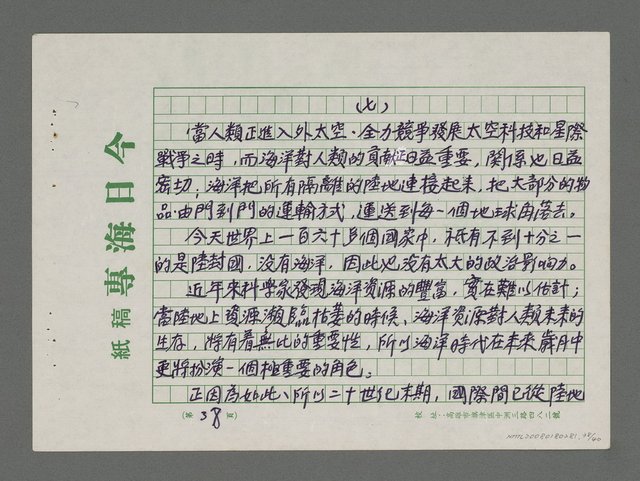 今日海專
稿紙
(七)
當人類正進入外太空,全力競爭發展太空科技和星際
戰爭之時,而海洋對人類的貢獻日益重要,関係也日益
密切,海洋把所有隔離的陸地連接起來,把大部分的物
品由門到門的運輸方式,運送到每一個地球角落去。
今天世界上一百六十多個國家中,祇有不到十分之一
的是陸封國,沒有海洋,因此也沒有太大的政治影响力。
近年來科學家發現海洋資源的豐富,實在難以估計;
當陸地上資源瀕臨枯萎的時候,海洋資源對人類未來的
生存,將有着無比的重要性,所以海洋時代在未來歲月中
更將扮演一個極重要的角色。
正因為如此,所以二十世纪末期,國際間已從陸地
(第38頁)
校 址:高雄市旗津區中洲三路四八二號
NMTL20080180281, 38/40